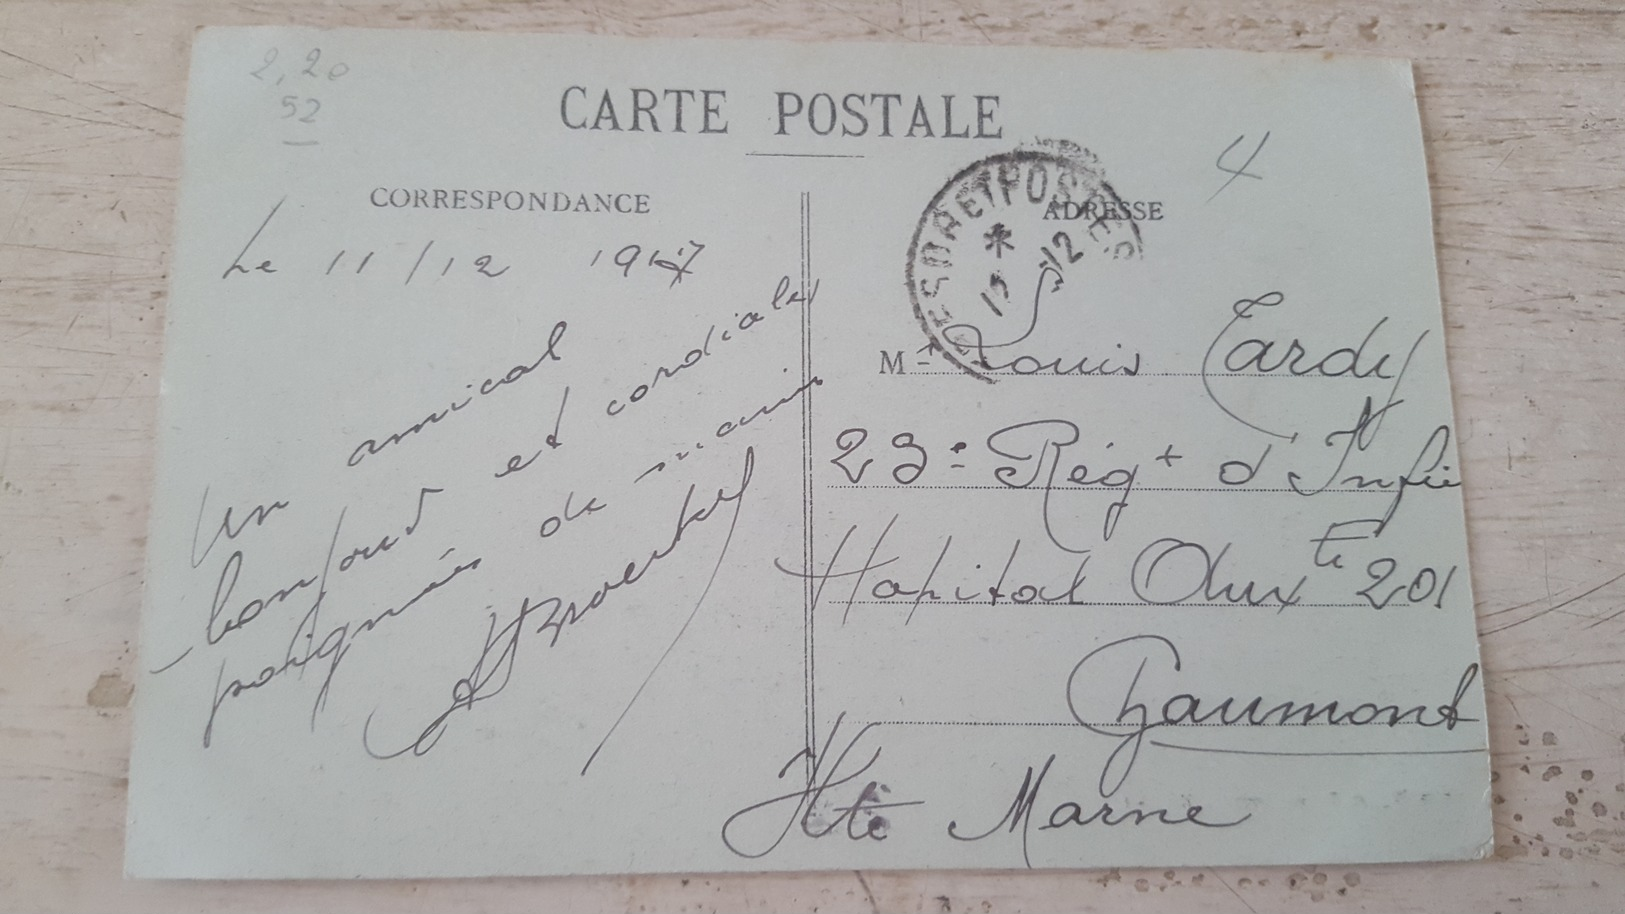 2,20
52
CARTE POSTALE
4
CORRESPONDANCE
Le 11/12 1917
Un amical
bonjour et cordiales
poignées de mains
TRESOR ET POSTES
* 12
ADRESSE
Mr Louis Tardy
23e Régt d'Infie
Hopital Auxre 201
Chaumont
Hte Marne